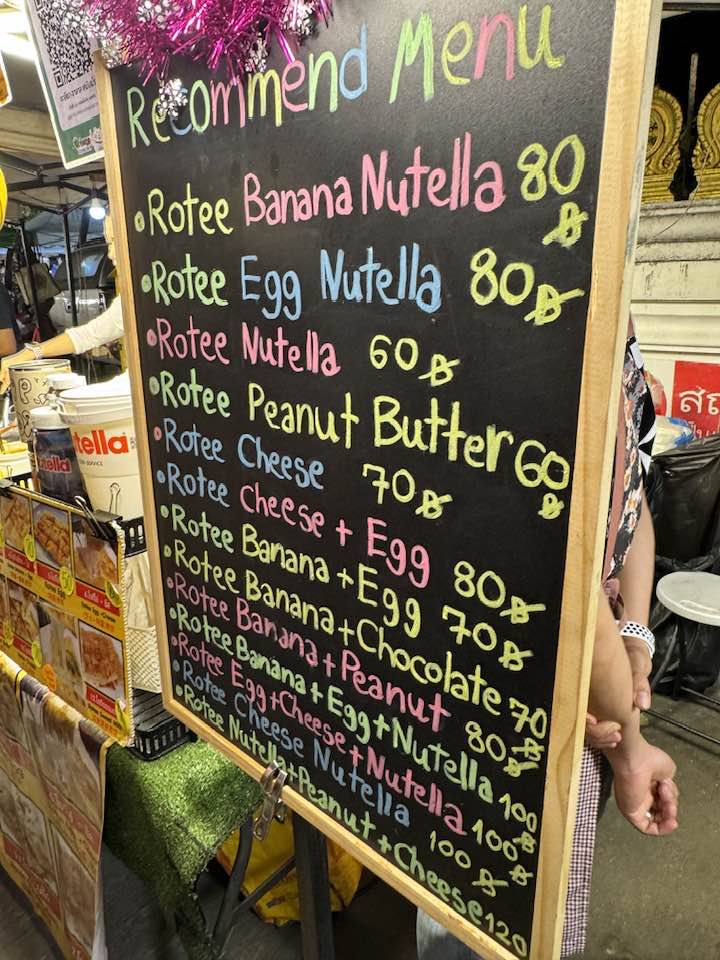 Recommend Menu
Rotee Banana Nutella 80฿
Rotee Egg Nutella 80฿
Rotee Nutella 60฿
Rotee Peanut Butter 60฿
Rotee Cheese 70฿
Rotee Cheese + Egg 80฿
Rotee Banana + Egg 70฿
Rotee Banana + Chocolate 70฿
Rotee Banana + Peanut 80฿
Rotee Banana + Egg + Nutella 100฿
Rotee Egg + Cheese + Nutella 100฿
Rotee Cheese Nutella 100฿
Rotee Nutella + Peanut + Cheese 120